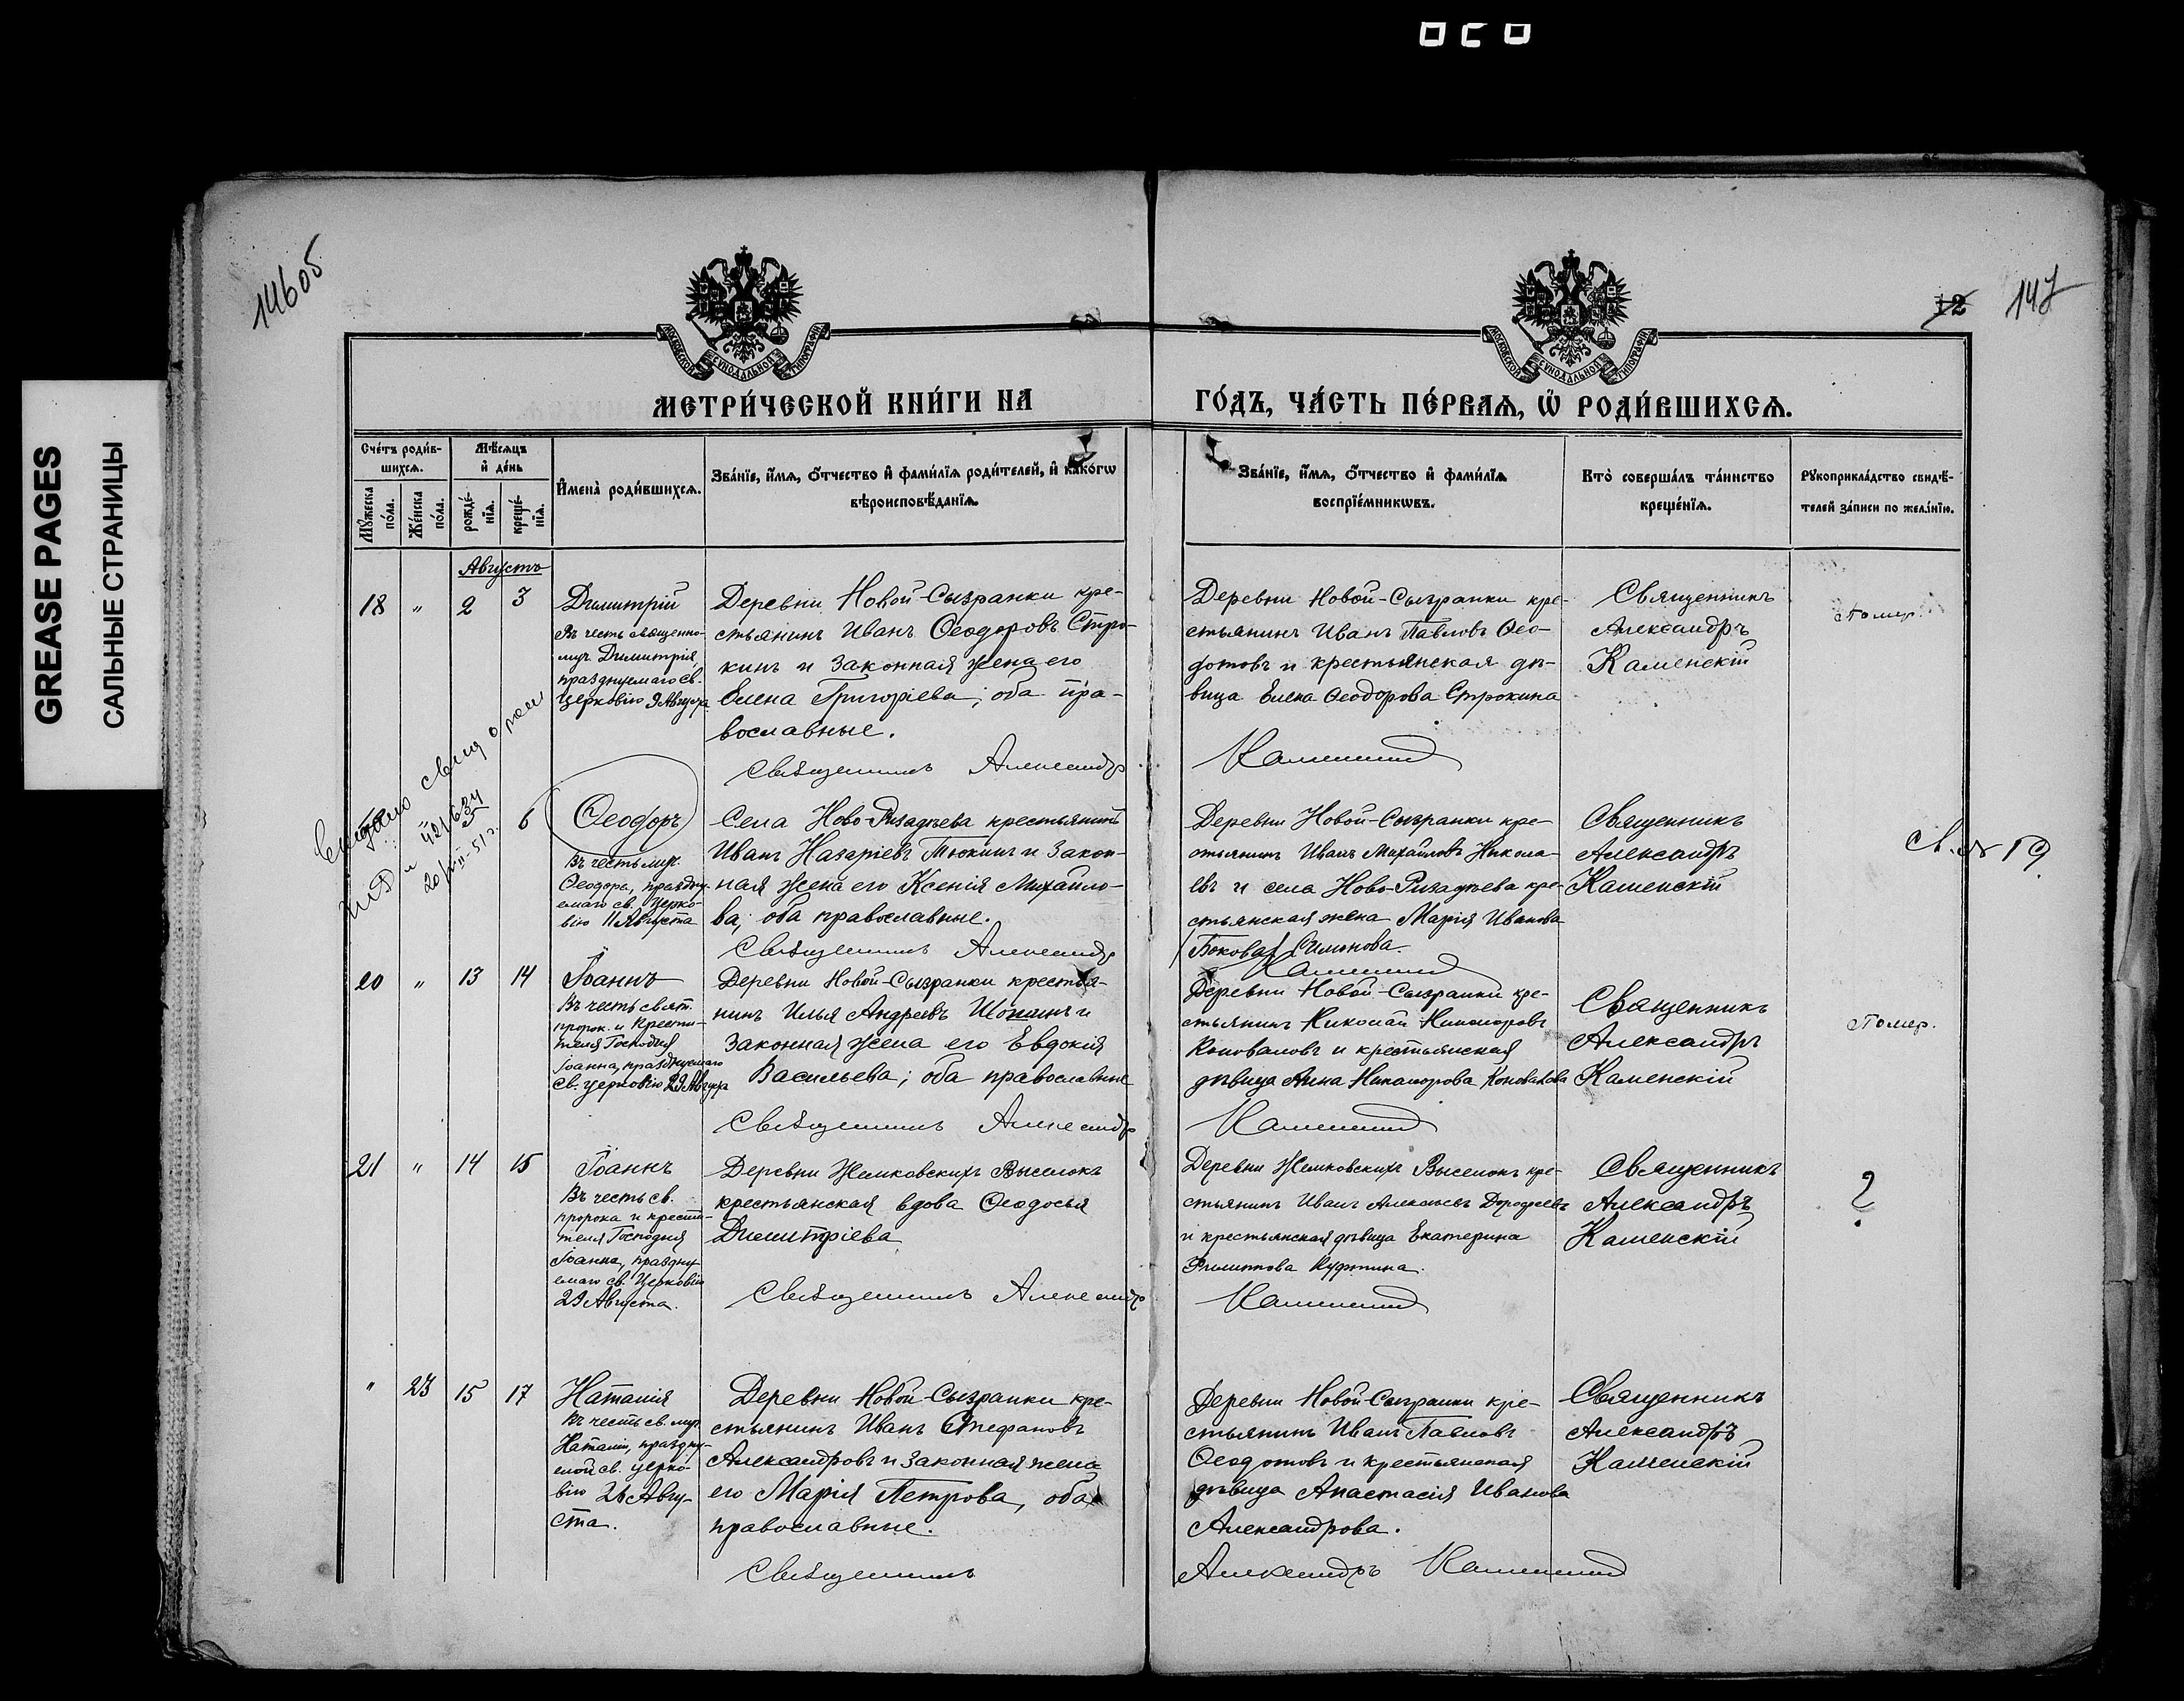 GREASE PAGES
САЛЬНЫЕ СТРАНИЦЫ
14605
12
147
МОСКОВСКОЙ СУНОДАЛЬНОЙ ТИПОГРАФІИ
МОСКОВСКОЙ СУНОДАЛЬНОЙ ТИПОГРАФІИ
МЕТРИ́ЧЕСКОЙ КНИ́ГИ НА
ГО́ДЪ, ЧА́СТЬ ПЕ́РВАЯ, Ѡ҆ РОДИ́ВШИХСЯ.
Сче́тъ роди́в-
шихся.
Мꙋ́жеска по́ла.
Же́нска по́ла.
Мѣ́сяцъ
и҆ де́нь
рожде́-
нїя.
креще́-
нїя.
И҆мена̀ роди́вшихся.
Зва́нїе, и҆́мя, ѻ҆́тчество и҆ фами́лїя роди́телей, и҆ како́гѡ
вѣроисповѣ́данїя.
Зва́нїе, и҆́мя, ѻ҆́тчество и҆ фами́лїя
воспрїе́мникѡвъ.
Кто̀ соверша́лъ та́инство
креще́нїя.
Рꙋкоприкла́дство свидѣ́-
телей за́писи по жела́нїю.
Августъ
18
"
2
3
Димитрій
Въ честь священно-
муч. Димитрія,
празднуемаго св.
Церковію 9 Августа
Деревни Новой-Сызранки кре-
стьянинъ Иванъ Ѳеодоровъ Стро-
кинъ и законная жена его
Елена Григоріева; оба пра-
вославные.
Священникъ Александръ
Деревни Новой-Сызранки кре-
стьянинъ Иванъ Павловъ Ѳео-
дотовъ и крестьянская дѣ-
вица Елена Ѳеодорова Строкина
Каменскій
Священникъ
Александръ
Каменскій
Помер.
20/VIII-51 г.
6
Ѳеодоръ
Въ честь муч.
Ѳеодора, праздну-
емаго св. Церко-
вію 11 Августа
Села Ново-Ризадѣева крестьянинъ
Иванъ Назаріевъ Тюкинъ и закон-
ная жена его Ксенія Михайло-
ва; оба православные.
Священникъ Александръ
Деревни Новой-Сызранки кре-
стьянинъ Иванъ Михайловъ Никола-
евъ и села Ново-Ризадѣева кре-
стьянская жена Марія Иванова
Бокова Симонова.
Каменскій
Священникъ
Александръ
Каменскій
св. № 19
20
"
13
14
Іоаннъ
Въ честь свят.
пророк. и Крести-
теля Господня
Іоанна, празднуемаго
св. церковію 29 Августа
Деревни Новой-Сызранки крестья-
нинъ Илья Андреевъ Шонинъ и
законная жена его Евдокія
Васильева; оба православные
Священникъ Александръ
Деревни Новой-Сызранки кре-
стьянинъ Николай Никаноровъ
Коноваловъ и крестьянская
дѣвица Анна Никанорова Коновалова
Каменскій
Священникъ
Александръ
Каменскій
Помер.
21
"
14
15
Іоаннъ
Въ честь св.
пророка и крести-
теля Господня
Іоанна, праздну-
емаго св. Церковію
29 Августа.
Деревни Жемковскихъ Выселокъ
крестьянская вдова Ѳеодосья
Димитріева
Священникъ Александръ
Деревни Жемковскихъ Выселокъ кре-
стьянинъ Иванъ Алексѣевъ Дорофеевъ
и крестьянская дѣвица Екатерина
Филиппова
Каменскій
Священникъ
Александръ
Каменскій
?
"
23
15
17
Наталія
Въ честь св. муч.
Наталіи, праздну-
емой св. церко-
вію 26 Авгу-
ста.
Деревни Новой-Сызранки кре-
стьянинъ Иванъ Стефановъ
Александровъ и законная жена
его Марія Петрова, оба
православные.
Священникъ
Деревни Новой-Сызранки кре-
стьянинъ Иванъ Павловъ
Ѳеодотовъ и крестьянская
дѣвица Анастасія Иванова
Александрова.
Александръ Каменскій
Священникъ
Александръ
Каменскій